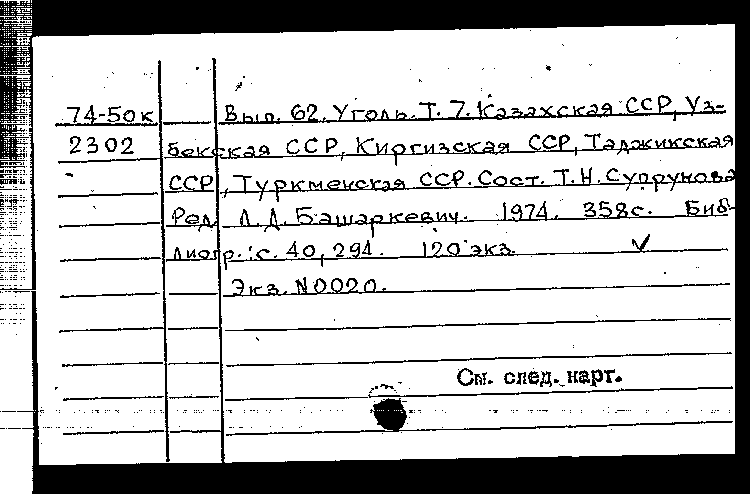 74-50к Вып. 62. Уголь. Т. 7. Казахская ССР, Уз-
2302 бекская ССР, Киргизская ССР, Таджикская
ССР, Туркменская ССР. Сост. Т.Н. Супрунова
Ред. Л.Д. Башаркевич. 1974. 358с. Биб-
лиогр.: с. 40, 294. 120 экз. ✓
Экз. N0020.
См. след. карт.